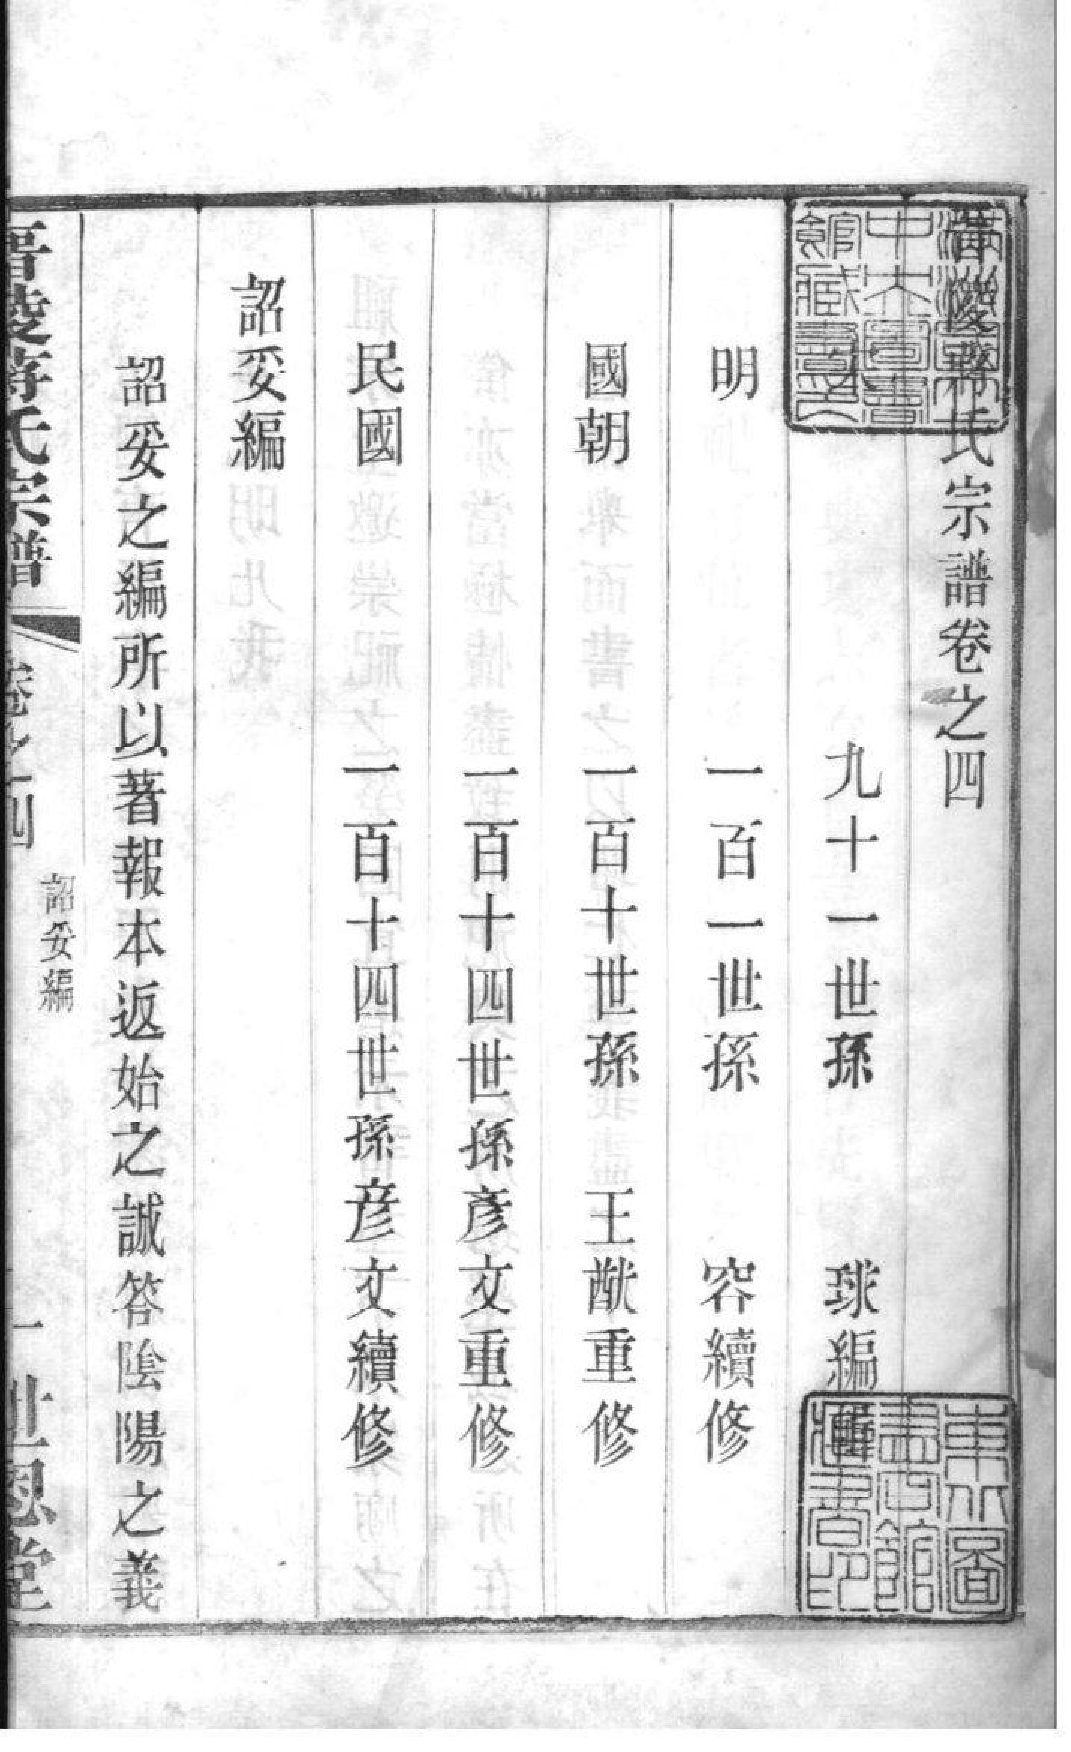 晉陵蔣氏宗譜卷之四
九十一世孫 球編輯
明 一百一世孫 容續修
國朝 一百十世孫 王猷重修
一百十四世孫彥文重修
民國 一百十四世孫彥文續修
詔妥編
詔妥之編所以著報本返始之誠答陰陽之義
晉陵蔣氏宗譜 卷之四 詔妥編 一 世恩堂